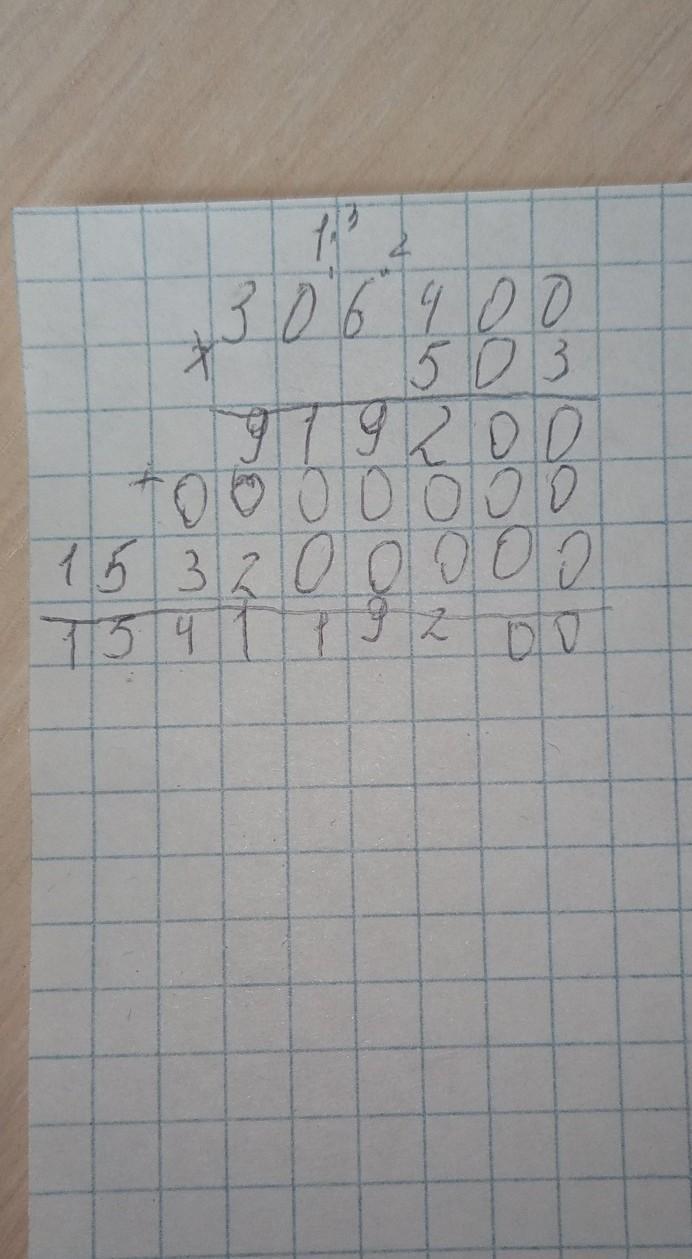 1 3 2
306400
× 503
919200
+ 0000000
153200000
154119200